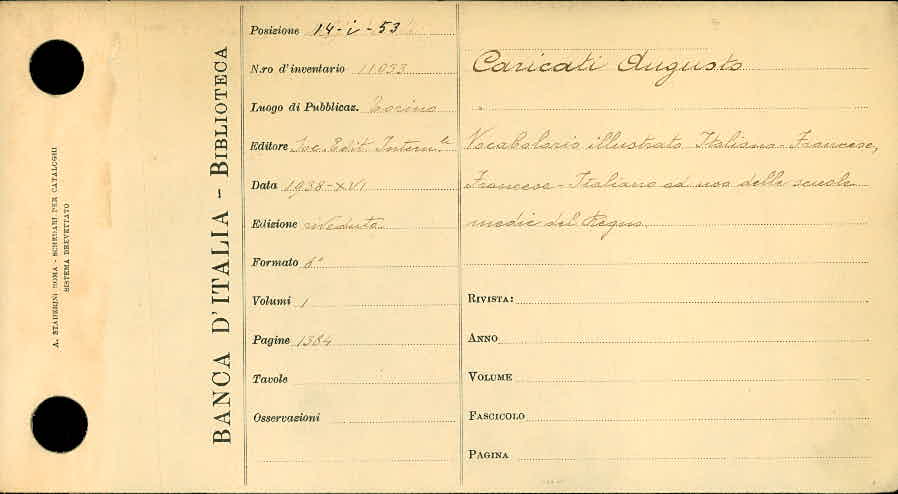 A. STADERINI ROMA - SCHEDARI PER CATALOGHI
SISTEMA BREVETTATO
BANCA D'ITALIA - BIBLIOTECA
Posizione 14-i-53
N.ro d'inventario 11053
Luogo di Pubblicaz. Torino
Editore Soc. Edit. Intern.le
Data 1938-XVI
Edizione riveduta
Formato 8°
Volumi 1
Pagine 1384
Tavole
Osservazioni
Caricati Augusto
Vocabolario illustrato Italiano-Francese,
Francese-Italiano ad uso delle scuole
medie del Regno
RIVISTA:
ANNO
VOLUME
FASCICOLO
PAGINA